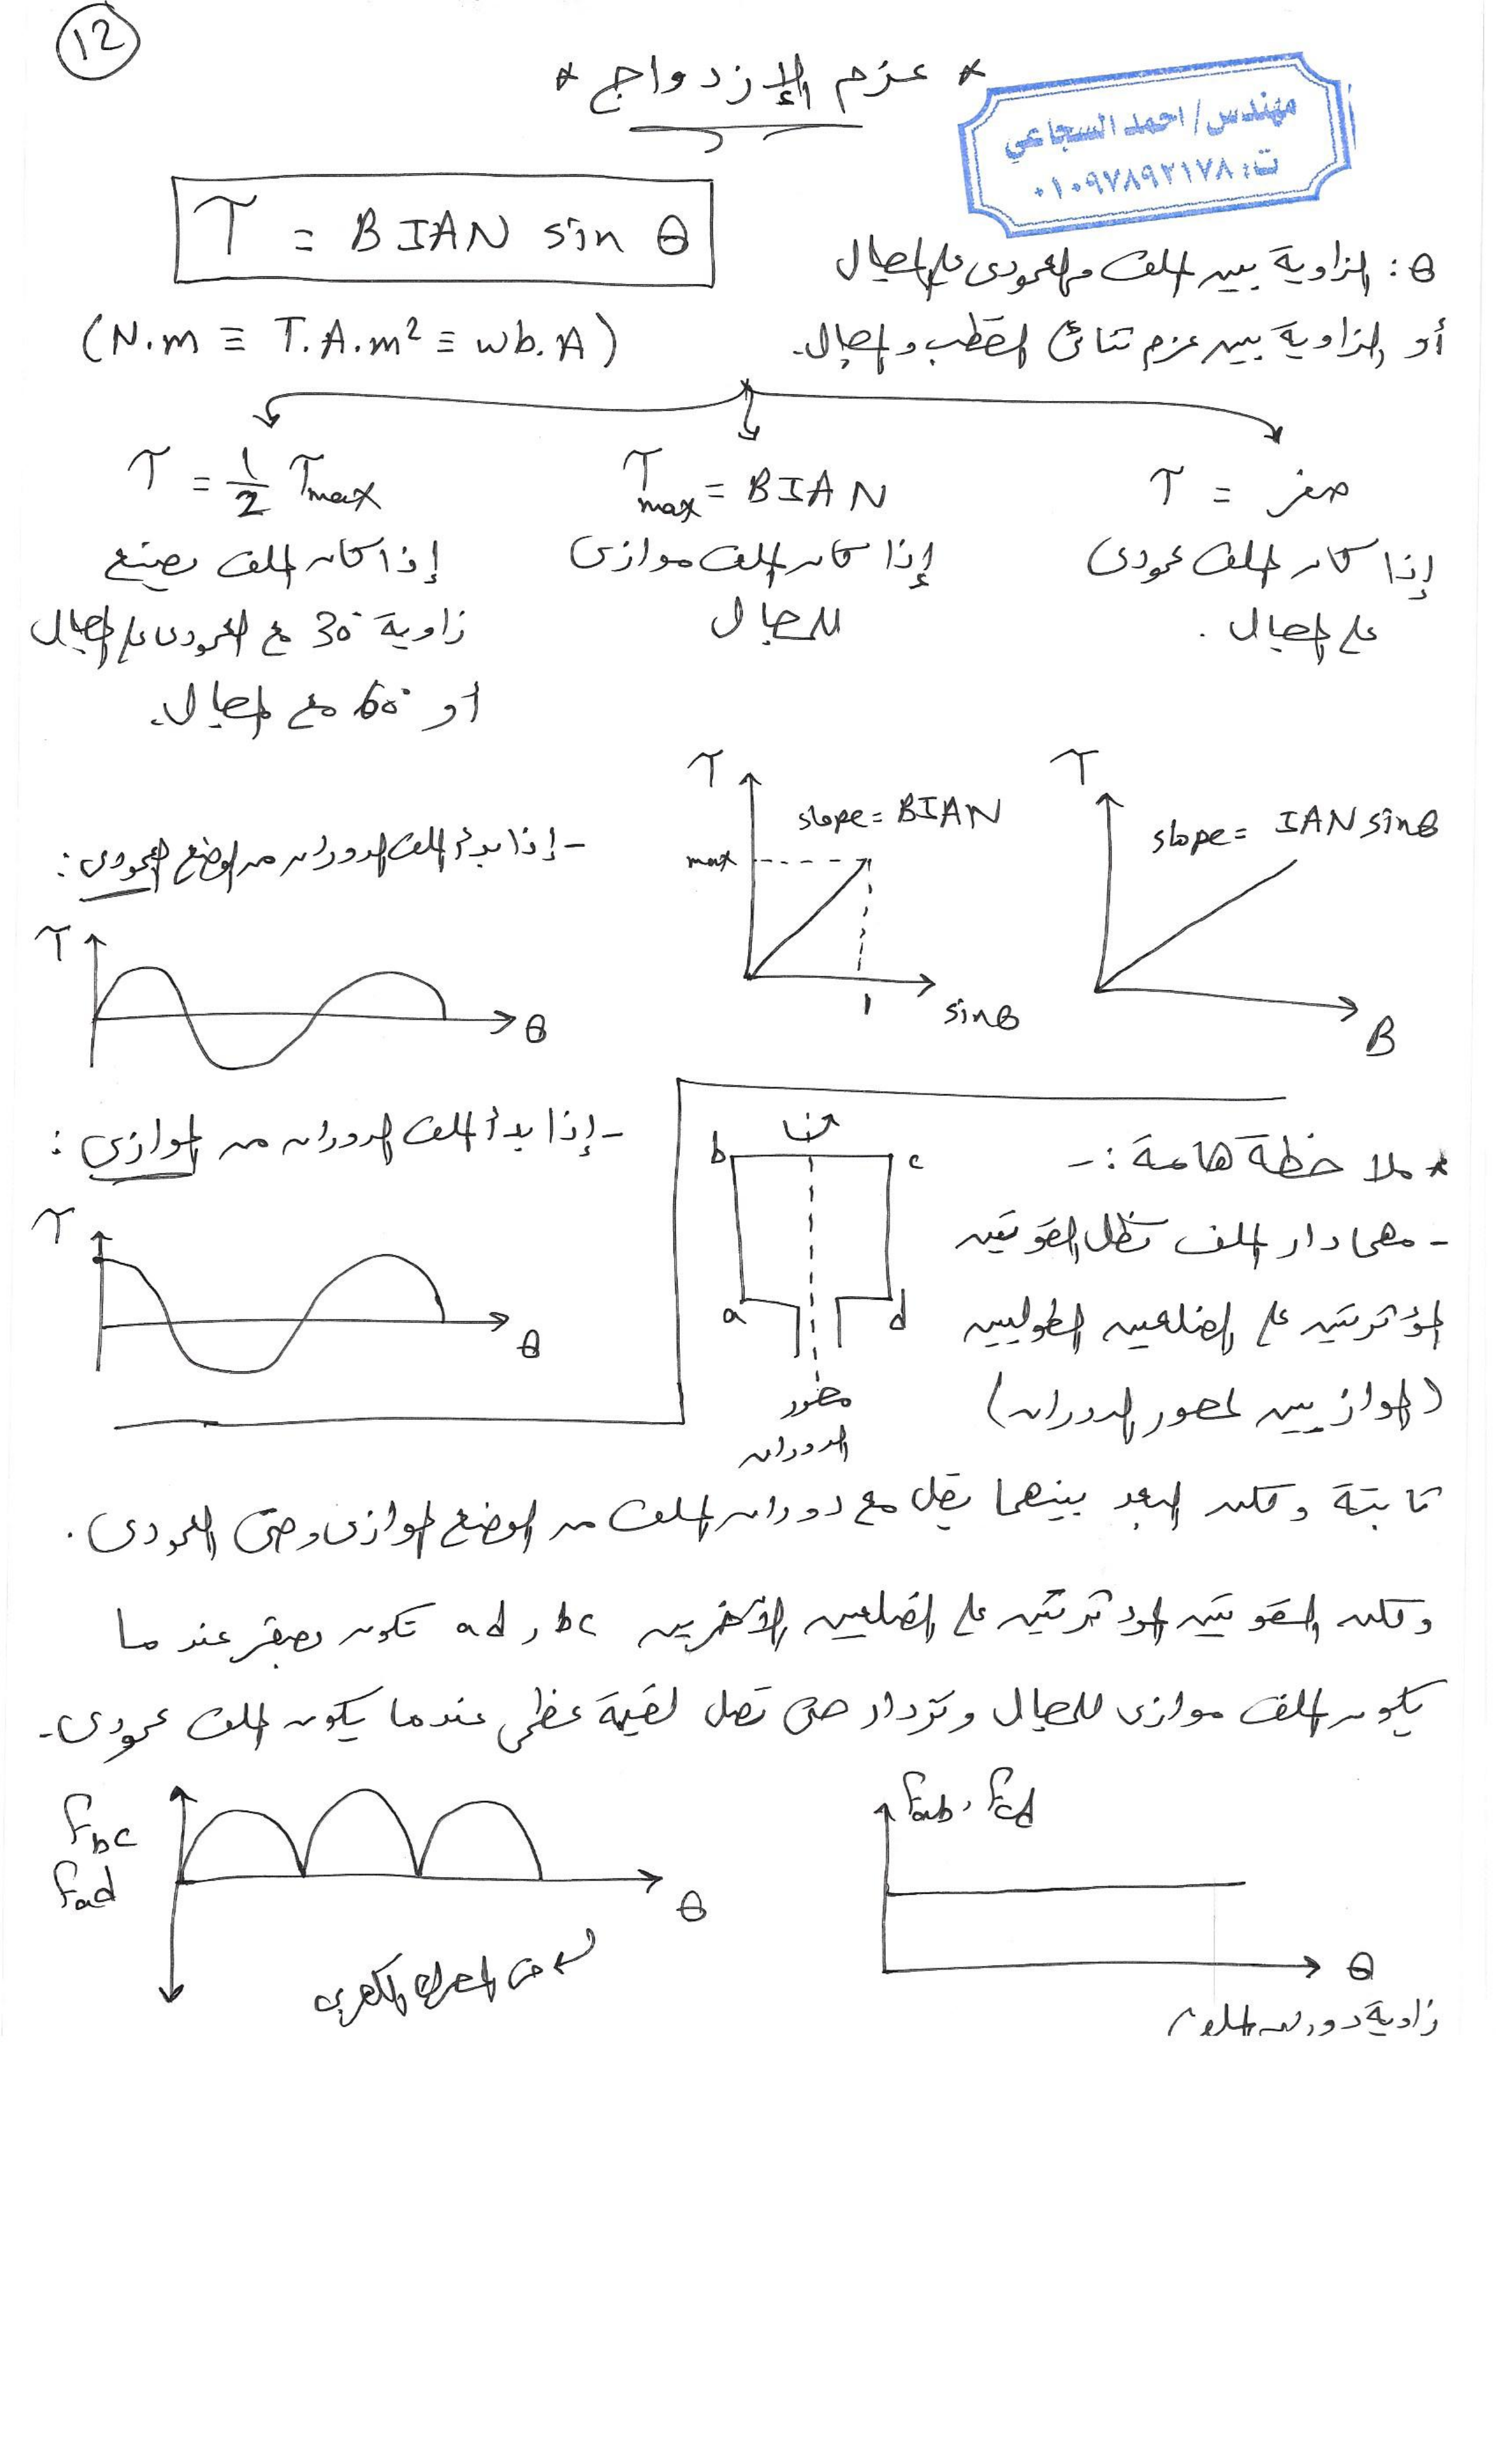 12
* عزم الإزدواج *
مهندس/ احمد السجاعي
ت: ٠١٠٩٧٨٩٢١٧٨
τ = BIAN sin θ
θ : الزاوية بين الملف والعمودى على المجال
(N.m ≡ T.A.m² ≡ wb.A)
أو الزاوية بين عزم ثنائى القطب والمجال.
τ = صفر
إذا كان الملف عمودى
على المجال.
τmax = BIAN
إذا كان الملف موازى
للمجال
τ = 1/2 τmax
إذا كان الملف يصنع
زاوية 30° مع العمودى على المجال
أو 60° مع المجال.
τ
slope = IAN sinθ
B
τ
slope = BIAN
max
1
sinθ
- إذا بدأ الملف الدوران من الوضع العمودى :
τ
θ
- إذا بدأ الملف الدوران من الموازى :
τ
θ
* ملاحظة هامة :-
- مهما دار الملف تظل القوتين
المؤثرتين على الضلعين الطوليين
(الموازيين لمحور الدوران)
b
c
a
d
محور
الدوران
ثابتة ولكن البعد بينهما يقل مع دوران الملف من الوضع الموازى وحتى العمودى.
ولكن القوتين المؤثرتين على الضلعين الآخرين ad, bc تكون بصفر عندما
يكون الملف موازى للمجال وتزداد حتى تصل لقيمة عظمى عندما يكون الملف عمودى.
Fab, Fcd
θ
زاوية دوران الملف
Fbc
Fad
θ
المحرك الكهربى